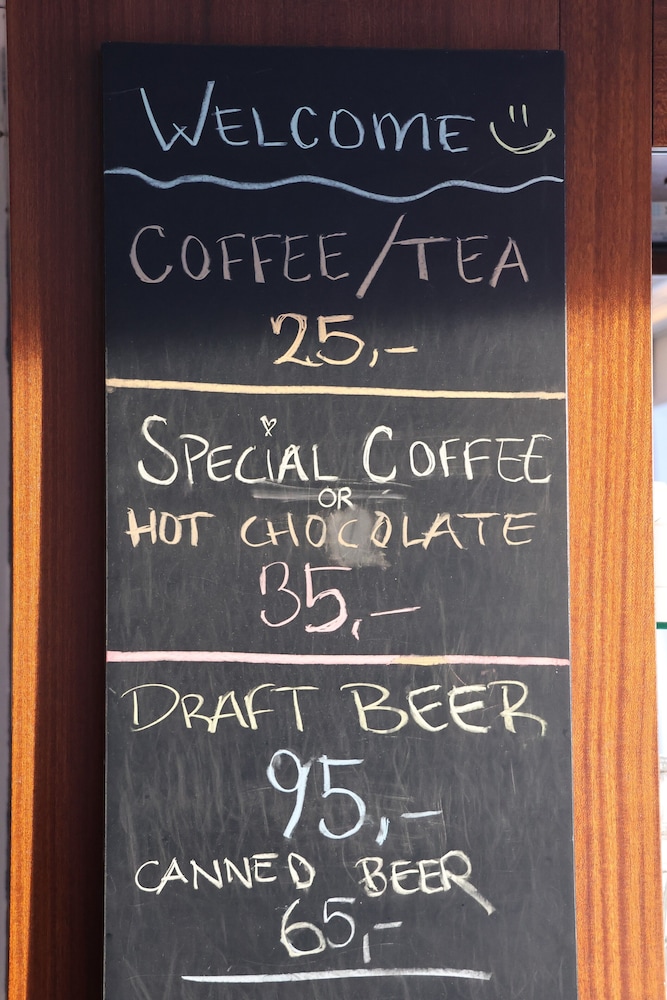 WELCOME
COFFEE/TEA
25,-
SPECIAL COFFEE
OR
HOT CHOCOLATE
35,-
DRAFT BEER
95,-
CANNED BEER
65,-